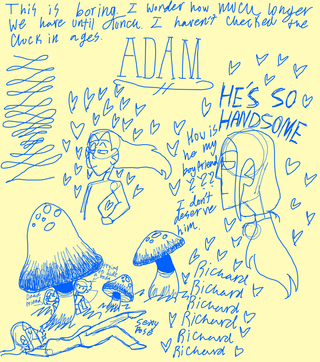 This is boring. I wonder how much longer
We have until lunch. I haven't checked the
Clock in ages.
ADAM
HE'S SO
HANDSOME
How is
he my
boyfriend
???
I don't
deserve
him.
Richard
Richard
Richard
Richard
Richard
Richard
Sexy
Pose